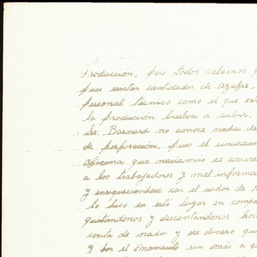 Producción, pero todos sabemos
pues existen cantidades de azufre,
personal técnico como el que est
la producción buelva a subir.
Sr Barnard no conoce nadas de
de perforación, pues el unicam
oficina que nadamas se concre
a los trabajadores y mal informa
y enriqueciendose con el sudor de
lo hizo en esté lugar en comp
quitandonos y descontandonos
cosita de nada y ese dinero que
y por el momento sin más a q